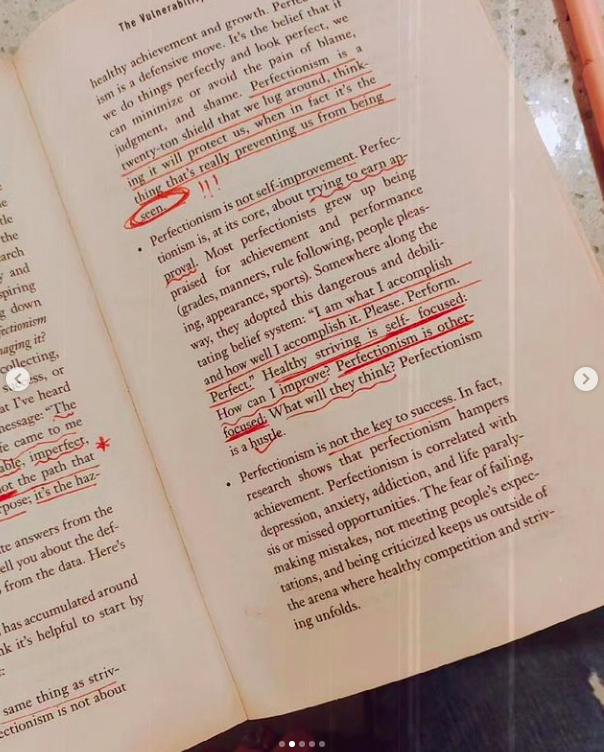 tle
the
arch
y and
spiring
g down
fectionism
naging it?
collecting,
ss, or
at I've heard
nessage: “The
fe came to me
able, imperfect,
ot the path that *
rpose; it's the haz-
te answers from the
ell you about the def-
from the data. Here's
has accumulated around
nk it's helpful to start by
same thing as striv-
ectionism is not about
The Vulnerability
healthy achievement and growth. Perfec-
ism is a defensive move. It's the belief that if
we do things perfectly and look perfect, we
can minimize or avoid the pain of blame,
judgment, and shame. Perfectionism is a
twenty-ton shield that we lug around, think-
ing it will protect us, when in fact it's the
thing that's really preventing us from being
seen. !!!
• Perfectionism is not self-improvement. Perfec-
tionism is, at its core, about trying to earn ap-
proval. Most perfectionists grew up being
praised for achievement and performance
(grades, manners, rule following, people pleas-
ing, appearance, sports). Somewhere along the
way, they adopted this dangerous and debili-
tating belief system: “I am what I accomplish
and how well I accomplish it. Please. Perform.
Perfect.” Healthy striving is self- focused:
How can I improve? Perfectionism is other-
focused: What will they think? Perfectionism
is a hustle.
• Perfectionism is not the key to success. In fact,
research shows that perfectionism hampers
achievement. Perfectionism is correlated with
depression, anxiety, addiction, and life paraly-
sis or missed opportunities. The fear of failing,
making mistakes, not meeting people's expec-
tations, and being criticized keeps us outside of
the arena where healthy competition and striv-
ing unfolds.